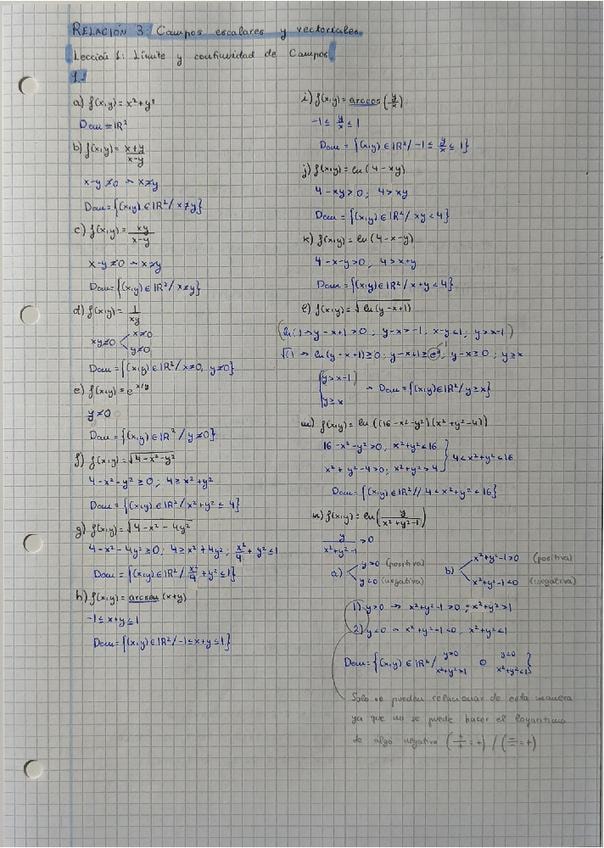 RELACIÓN 3: Campos escalares y vectoriales
Lección 1: Límite y continuidad de Campos
1.-
a) f(x,y) = x² + y²
Dom = IR²
b) f(x,y) = x+y / x-y
x-y ≠ 0 → x≠y
Dom = {(x,y) ∈ IR² / x≠y}
c) f(x,y) = xy / x-y
x-y ≠ 0 → x≠y
Dom = {(x,y) ∈ IR² / x≠y}
d) f(x,y) = 1 / xy
xy≠0 < x≠0
y≠0
Dom = {(x,y) ∈ IR² / x≠0, y≠0}
e) f(x,y) = e^x/y
y≠0
Dom = {(x,y) ∈ IR² / y≠0}
f) f(x,y) = √4-x²-y²
4-x²-y² ≥ 0; 4 ≥ x²+y²
Dom = {(x,y) ∈ IR² / x²+y² ≤ 4}
g) f(x,y) = √4-x²-4y²
4-x²-4y² ≥ 0; 4 ≥ x²+4y², x²/4 + y² ≤ 1
Dom = {(x,y) ∈ IR² / x²/4 + y² ≤ 1}
h) f(x,y) = arcsen (x+y)
-1 ≤ x+y ≤ 1
Dom = {(x,y) ∈ IR² / -1 ≤ x+y ≤ 1}
i) f(x,y) = arccos (y/x)
-1 ≤ y/x ≤ 1
Dom = {(x,y) ∈ IR² / -1 ≤ y/x ≤ 1}
j) f(x,y) = ln (4-xy)
4-xy > 0; 4 > xy
Dom = {(x,y) ∈ IR² / xy < 4}
k) f(x,y) = ln (4-x-y)
4-x-y > 0, 4 > x+y
Dom = {(x,y) ∈ IR² / x+y < 4}
l) f(x,y) = √ln (y-x+1)
(ln( ) → y-x+1 > 0; y-x > -1, x-y < 1; y > x-1)
√( ) → ln (y-x+1) ≥ 0; y-x+1 ≥ e⁰, y-x ≥ 0; y ≥ x
{y > x-1
y ≥ x → Dom = {(x,y) ∈ IR² / y ≥ x}
m) f(x,y) = ln ((16-x²-y²)(x²+y²-4))
16-x²-y² > 0, x²+y² < 16
x²+y²-4 > 0; x²+y² > 4 } 4 < x²+y² < 16
Dom = {(x,y) ∈ IR² // 4 < x²+y² < 16}
n) f(x,y) = ln (y / x²+y²-1)
y / x²+y²-1 > 0
a) < y>0 (positiva)
y<0 (negativa)
b) < x²+y²-1>0 (positiva)
x²+y²-1<0 (negativa)
1) y>0 → x²+y²-1 > 0; x²+y² > 1
2) y<0 → x²+y²-1 < 0, x²+y² < 1
Dom = {(x,y) ∈ IR² / y>0 x²+y²>1 o y<0 x²+y²<1}
Solo se pueden relacionar de esta manera
ya que no se puede hacer el logaritmo
de algo negativo (+/+ = +) / (-/- = +)